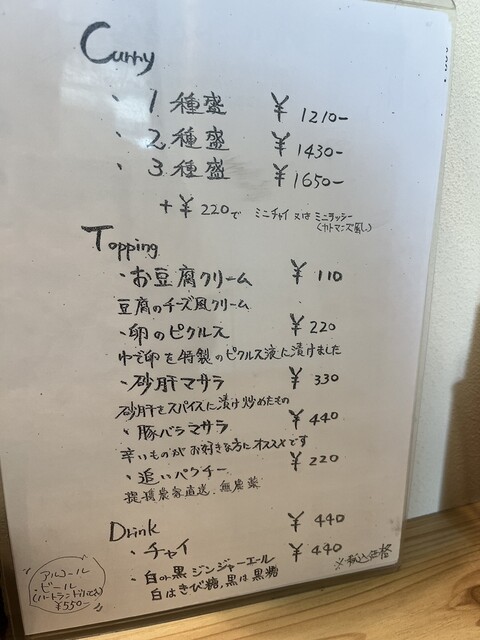 Curry
・1種盛 ¥1210-
・2種盛 ¥1430-
・3種盛 ¥1650-
+¥220で ミニチャイ 又は ミニラッシー
(カトマンズ風)
Topping
・お豆腐クリーム ¥110
豆腐のチーズ風クリーム
・卵のピクルス ¥220
ゆで卵を特製のピクルス液に漬けました
・砂肝マサラ ¥330
砂肝をスパイスに漬け炒めたもの
・豚バラマサラ ¥440
辛いものがお好きな方にオススメです
・追いパクチー ¥220
提携農家直送、無農薬
Drink ¥440
・チャイ ¥440
・白or黒 ジンジャーエール
白はきび糖、黒は黒糖
※税込価格
アルコール
・ビール
¥550-